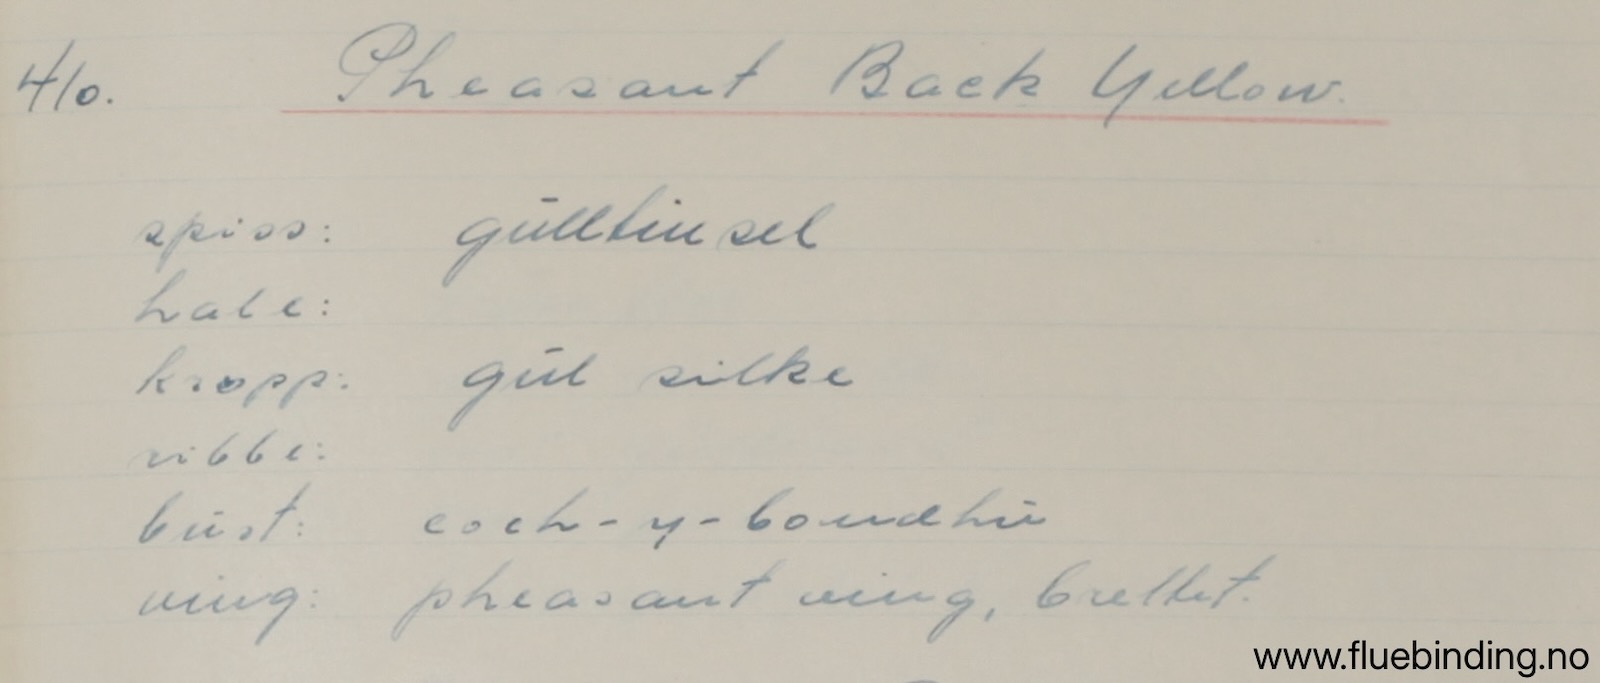 4/0. Pheasant Back Yellow.
spiss: gülltinsel
hale:
kropp: gül silke
ribbe:
büst: coch-y-bondhü
ving: pheasant ving, brettet.
www.fluebinding.no